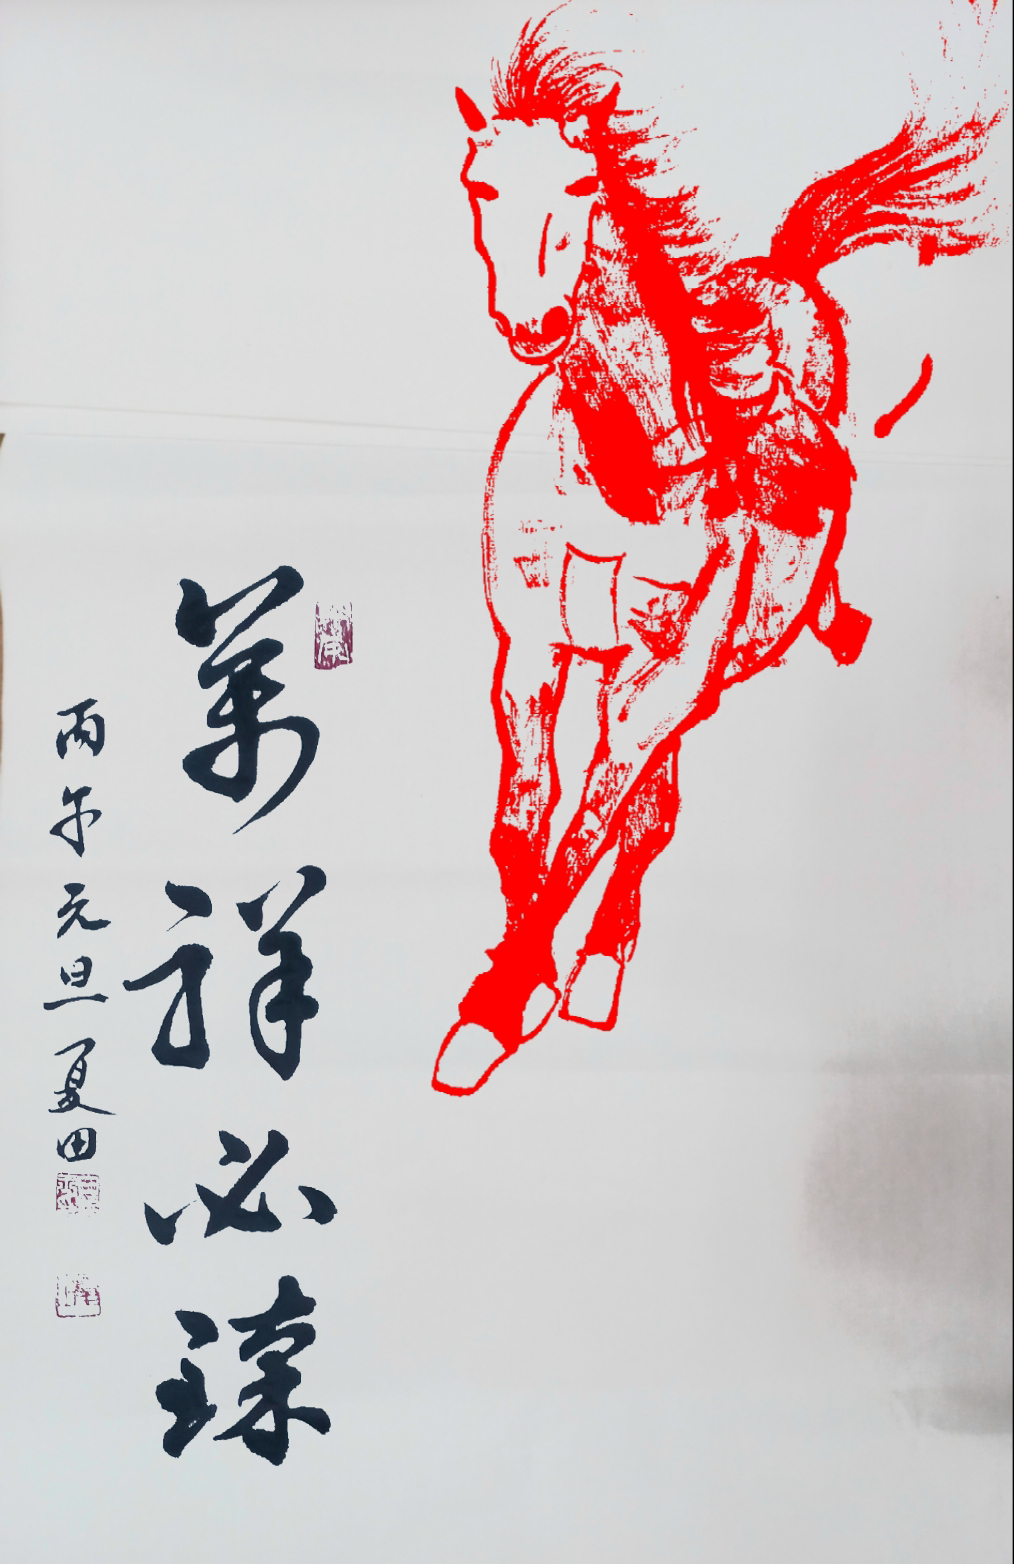 萬祥必臻
丙午元旦夏田